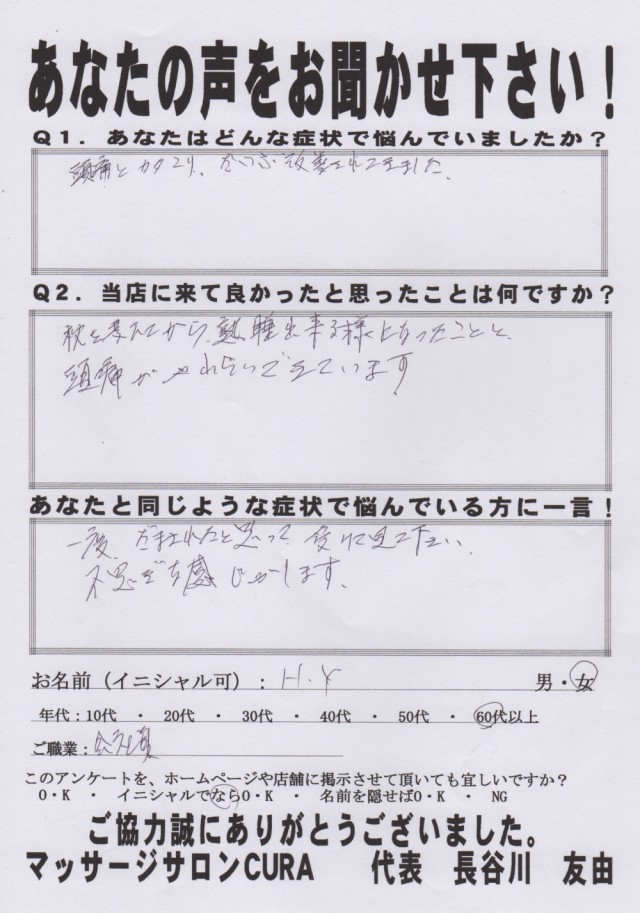 あなたの声をお聞かせ下さい！
Q1．あなたはどんな症状で悩んでいましたか？
頭痛とカタコリ、だいぶ改善されてきました。
Q2．当店に来て良かったと思ったことは何ですか？
枕を変えてから、熟睡出来る様になったことと、
頭痛がやわらいできています
あなたと同じような症状で悩んでいる方に一言！
一度、だまされたと思って、受けて見て下さい、
不思ぎな感じがします、
お名前（イニシャル可）：H.Y 男・女
年代：10代 ・ 20代 ・ 30代 ・ 40代 ・ 50代 ・ 60代以上
ご職業：会社員
このアンケートを、ホームページや店舗に掲示させて頂いても宜しいですか？
O・K ・ イニシャルでならO・K ・ 名前を隠せばO・K ・ NG
ご協力誠にありがとうございました。
マッサージサロンCURA 代表 長谷川 友由